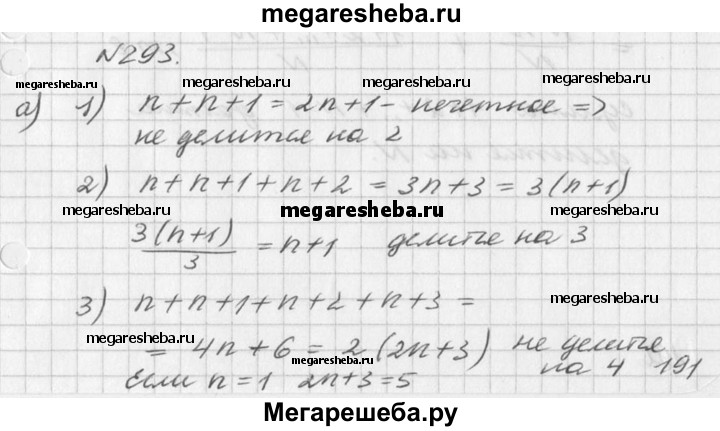 megaresheba.ru
№293.
megaresheba.ru megaresheba.ru
а) 1) n + n + 1 = 2n + 1 - нечетное =>
не делится на 2
2) n + n + 1 + n + 2 = 3n + 3 = 3(n+1)
megaresheba.ru megaresheba.ru megaresheba.ru
3(n+1)/3 = n+1 делитье на 3
3) n + n + 1 + n + 2 + n + 3 =
megaresheba.ru megaresheba.ru
= 4n + 6 = 2(2n+3) не делитье
на 4 191
Если n = 1 2n+3 = 5
Мегарешеба.ру